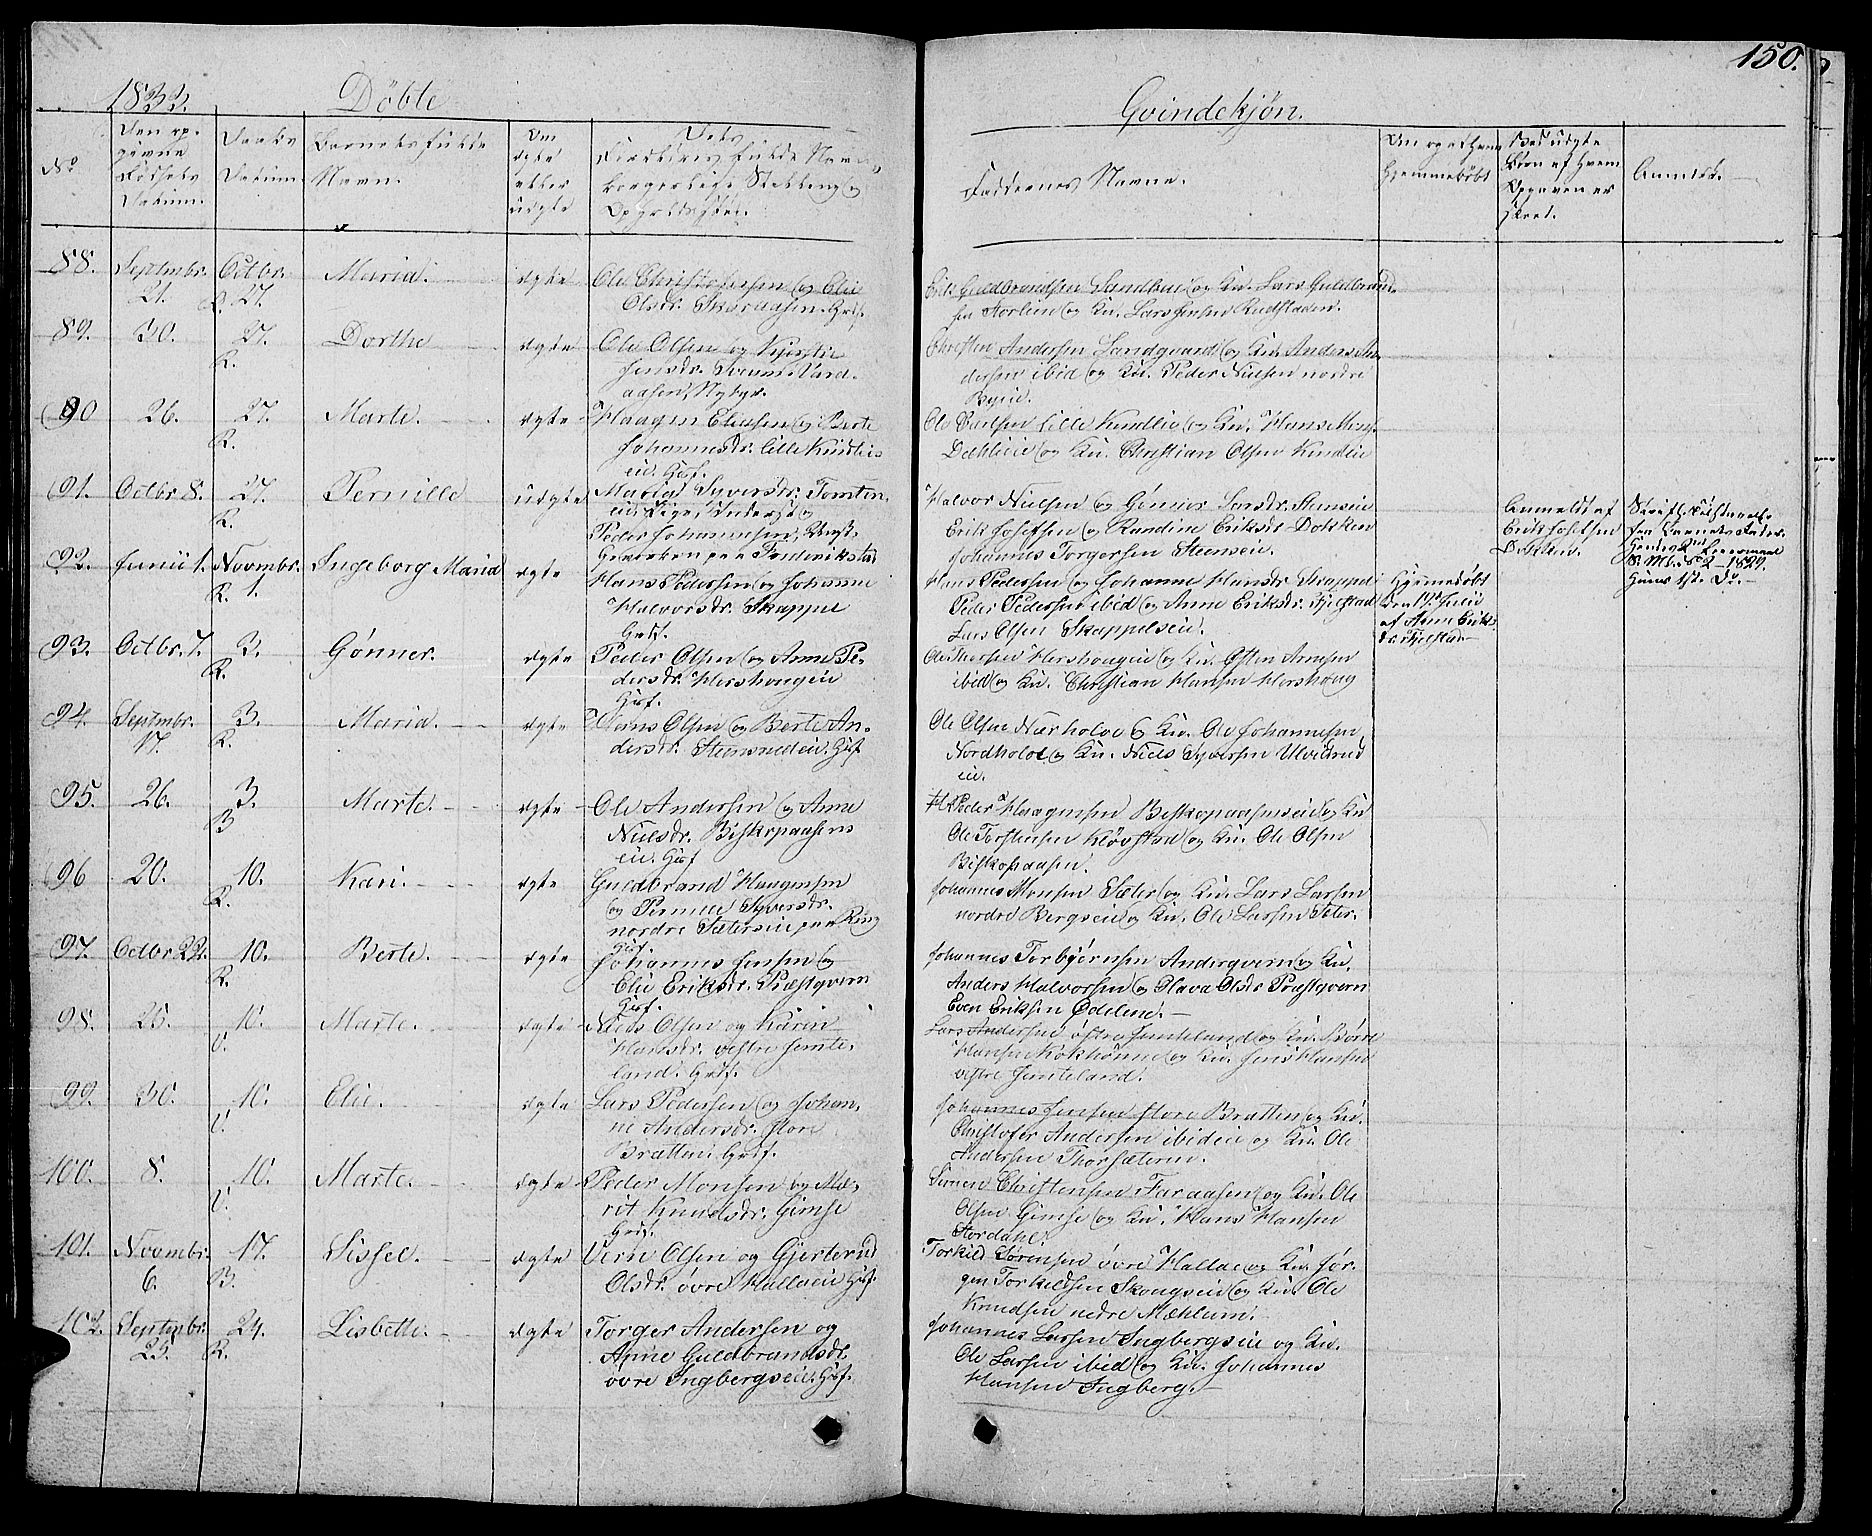 150.
1833. Döbte
Qvindekjøn.
No
Den op-
givne
Fødsels
Datum.
Daabs
Datum
Barnets fulde
Navn.
Om
ægte
eller
uægte
Dets
Forældres fulde Navn,
borgerlige Stilling og
Opholdssted.
Faddernes Navne.
Om og af hvem
hjemmedøbt
Ved uægte
Børn af hvem
Opgaven er
skeet.
Anmærk.
88. Septmbr. 21. Octbr. 27. Maria. ægte Ole Christophersen og Elie
Olsdr. Skaraasen. Grdf.
Erik Guldbrandsen Sundbye og Ku. Lars Guldbrand-
sen og Ku. Lars Jensen Rudstaden.
89. 30. 27. R. Dorthe ægte Ole Olsen og Kjerstie
Jensdr. Svenn-Vard-
aasen, Nybyr.
Christen Andersen Sandgaard og Ku. Anders An-
dersen ibid og Ku. Peder Nielsen nordre
Byeie.
90 26. 27. R. Marte. ægte Haagen Eliesen og Berte
Johannesdr. lille Kindlie-
eie. Huf.
Ole Poulsen lille Kindlie og Ku. Hans Mons.
Dæhlieie og Ku. Christian Olsen Kindlie
91. Octbr 8. 27. R. Pernille uægte Maria Syversdr. Tomten-
eie. Pige, Inderst og
Peder Johannesen, Ungk.
Gevorken paa Frederikstad
Halvor Nielsen og Gønnor Larsdr. Steenseie
Erik Josefsen og Randine Eriksdr Dokken
Johannes Torgersen Steenseie.
Anmeldt af
Erik Josefsen
Dokken.
Skriftl. tilstaaelse
fra Barnets Fader.
Hendes 2det Leiermaal
S. Ml. No 2 - 1829.
Hans 1st. Do. -
92. Junii 1. Novmbr. 1. R. Ingeborg Maria ægte Hans Pedersen og Johanne
Halvorsdr. Skappel
Grdf.
Hans Pedersen og Johanne Hansdr. Skappel
Peder Pedersen ibid og Anne Eriksdr. Fjelstad
Lars Olsen Skappelseie.
Hjemmedøbt
den 17de Julii
af Anne Eriks-
dr. Fjelstad.
93. Octbr. 7. 3. R. Gønner. ægte Peder Olsen og Anne Pe-
dersdr. Hershougeie
Huf.
Ole Thorsen Hershougeie og Ku. Østen Arnesen
ibid og Ku. Christian Hansen Hershoug
94. Septmbr. 17. 3. R. Maria. ægte Jens Olsen og Berte An-
dersdr. Steensrudeie. Huf.
Ole Olsen Nærholde & Ku. Ole Johannesen
Nordholde og Ku. Niels Syversen Ulvedrud
eie.
95. 26. 3. B Marte. ægte Ole Andersen og Anne
Nielsdr. Biskopaasens
eie. Huf
Peder Haagensen Biskopaasenseie og Ku
Ole Torstensen Kløvstad og Ku. Ole Olsen
Biskopaasen.
96 20. 10. R. Kari. ægte Guldbrand Haagensen
og Pernille Syversdr.
nordre Sæterseie paa Ring
Huf.
Johannes Monsen Sæter og Ku. Lars Larsen
nordre Bergseie og Ku. Ole Larsen Sæter.
97. Octbr 22. 10. R. Berte. ægte Johannes Jensen og
Elie Eriksdr. Præstqvern
Huf.
Johannes Torbjørnsen Anderqvern og Ku.
Anders Halvorsen og Olava Olsdr Præstqvern
Even Eriksen Ødelien. -
98. 25. 10. V. Marte. ægte Niels Olsen og Karen
Hansdr. vestre Jemte-
land. Grdf.
Lars Andersen østre Jemteland og Ku. Børre
Hansen Kokhonne og Ku. Jens Hansen
vestre Jemteland.
99. 30. 10. V. Elie. ægte Lars Pedersen og Johan-
ne Andersdr. store
Bratten. Grdf.
Johannes Jensen store Bratten og Ku.
Christofer Andersen ibid eie og Ku. Ole
Andersen Thorsæteren.
100. 8. 10. V. Marte. ægte Peder Monsen og Ma-
rit Knudsdr. Gimse
Grdf.
Simen Christensen Furaasen og Ku. Ole
Olsen Gimse og Ku. Hans Hansen
Stordahl.
101. Novmbr. 6. 17. B. Sissel. ægte Verne Olsen og Gjerterud
Olsdr. øvre Halloeie Huf.
Torkild Sørensen øvre Halloe og Ku. Jør-
gen Torkildsen Skougseie og Ku. Ole
Knudsen nedre Mæhlum.
102. Septmbr. 25. 24. R. Lisbette. ægte Torger Andersen og
Anne Guldbrandsdr.
øvre Ingbergseie. Huf.
Johannes Larsen Ingbergseie og Ku.
Ole Larsen ibid og Ku. Johannes
Hansen Ingberg. -